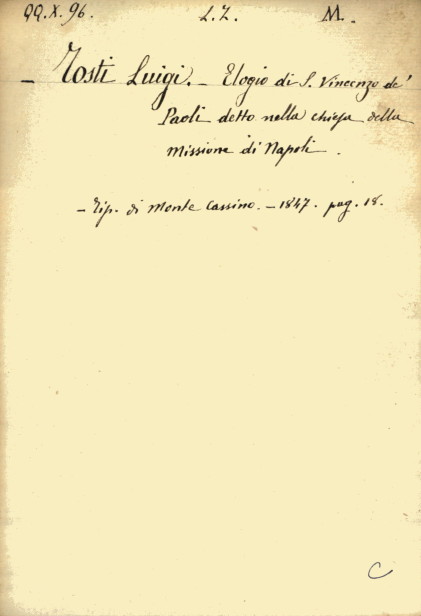 QQ.X.96. L.Z. M.
— Tosti Luigi. — Elogio di S. Vincenzo de'
Paoli detto nella chiesa della
Missione di Napoli.
— Tip. di Monte Cassino. — 1847. pag. 18.
C